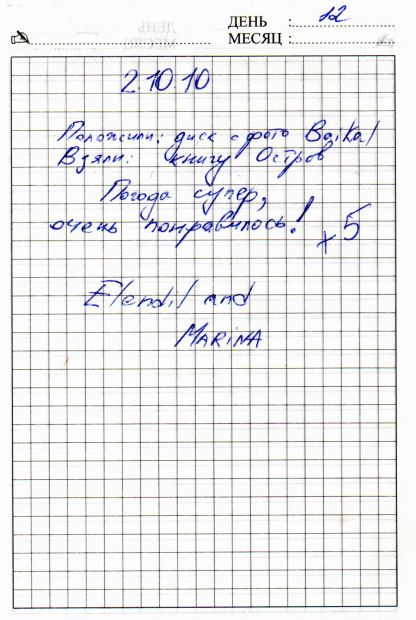 ДЕНЬ : 12
МЕСЯЦ :
2.10.10
Положили: диск с фото Baikal
Взяли: книгу Остров
Погода супер,
очень понравилось! +5
Elendil and
MARINA